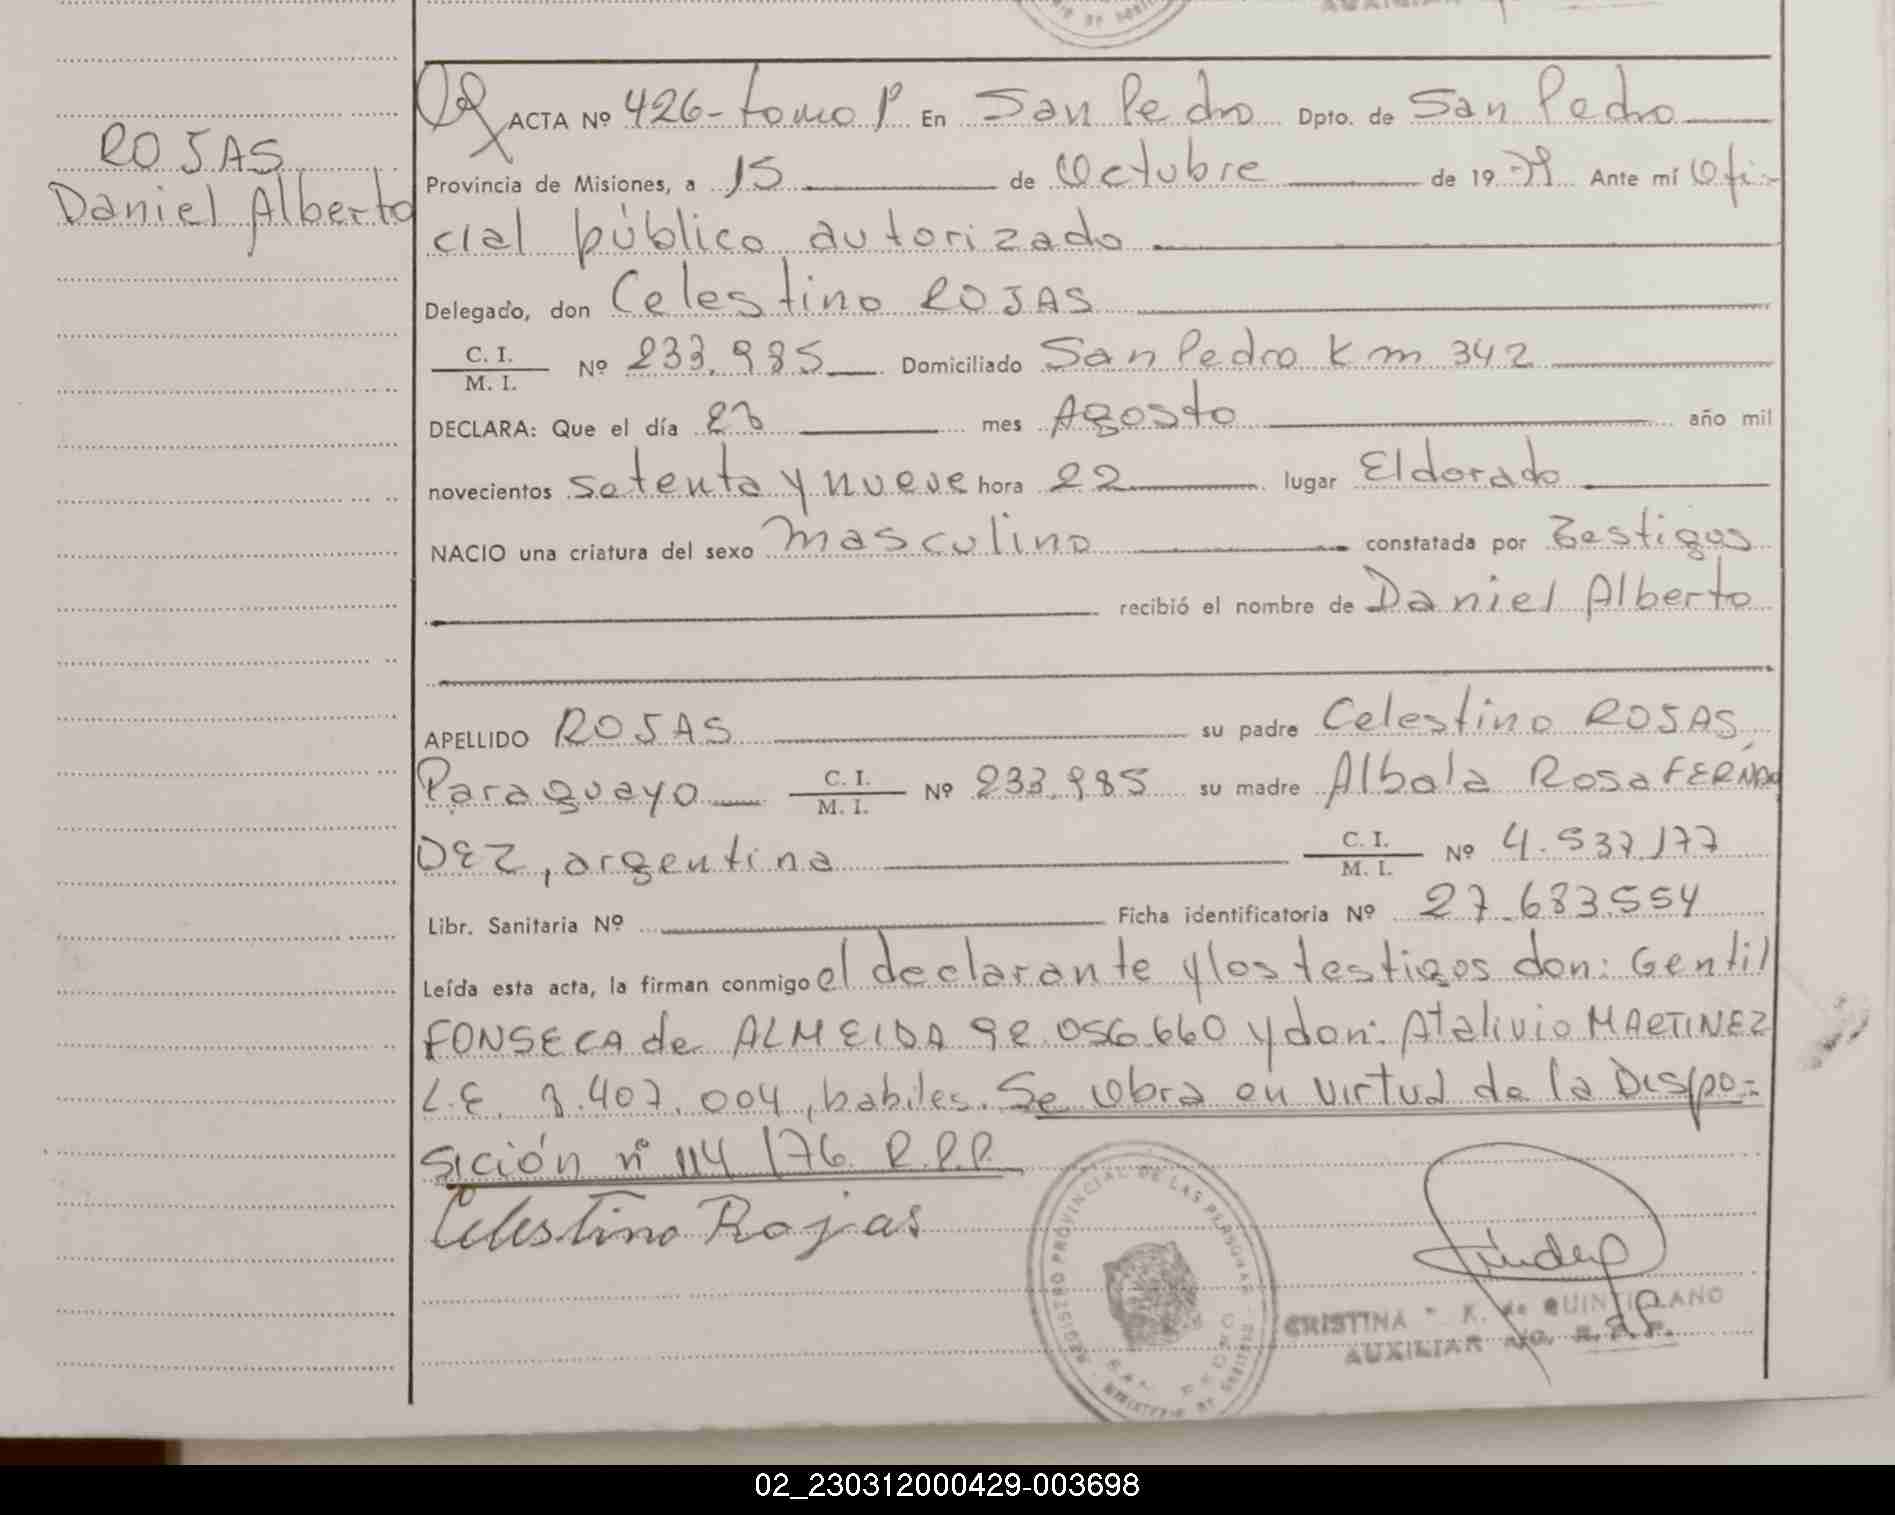 ROJAS
Daniel Alberto
ACTA Nº 426-tomo 1º En San Pedro Dpto. de San Pedro
Provincia de Misiones, a 15 de Octubre de 1979 Ante mí Ofi-
cial público autorizado
Delegado, don Celestino ROJAS
C. I.
M. I. Nº 233.985 Domiciliado San Pedro Km 342
DECLARA: Que el día 23 mes Agosto año mil
novecientos setenta y nueve hora 22 lugar Eldorado
NACIO una criatura del sexo masculino constatada por Testigos
recibió el nombre de Daniel Alberto
APELLIDO ROJAS su padre Celestino ROJAS,
Paraguayo C. I.
M. I. Nº 233.985 su madre Albola Rosa FERNAN
DEZ, argentina C. I.
M. I. Nº 4.537.177
Libr. Sanitaria Nº Ficha identificatoria Nº 27.683.554
Leída esta acta, la firman conmigo el declarante y los testigos don: Gentil
FONSECA de ALMEIDA 92.056.660 y don: Atalivio MARTINEZ
L.E. 3.407.004, habiles. Se obra en virtud de la Dispo-
sición nº 114/76 R.P.P.
Celestino Rojas
REGISTRO PROVINCIAL DE LAS PERSONAS
SAN PEDRO
CRISTINA K. de QUINTILANO
AUXILIAR A/C. R.P.P.
02_230312000429-003698